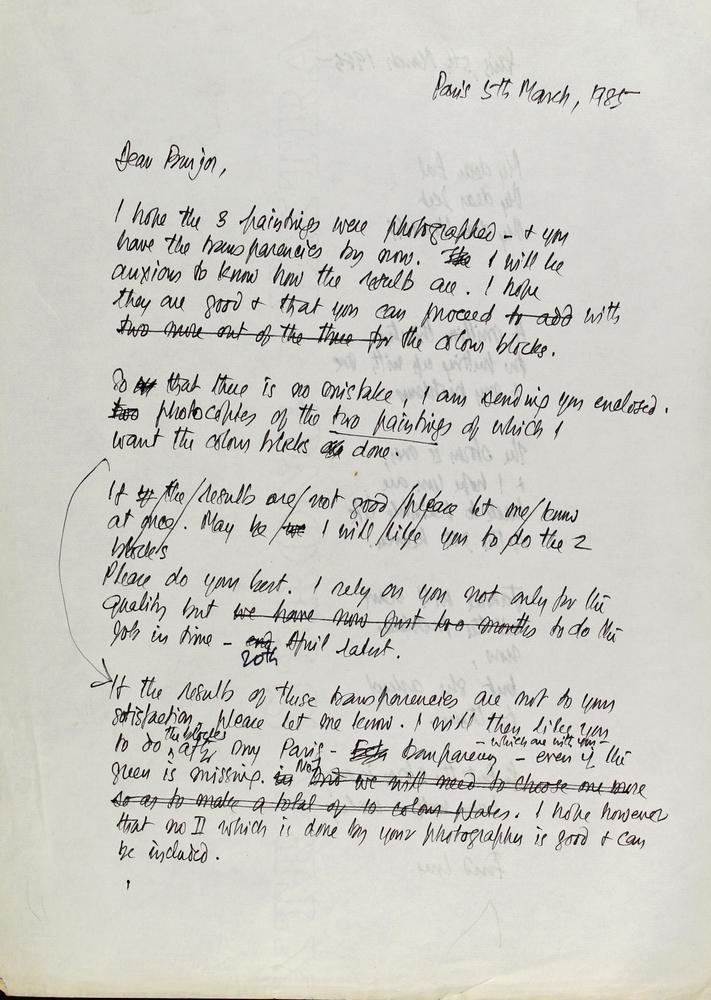 Paris 5th March, 1985
Dear Burjor,
I hope the 3 paintings were photographed - & you
have the transparencies by now. The I will be
anxious to know how the results are. I hope
they are good & that you can proceed to add with
two more out of the three for the colour blocks.
So that there is no mistake, I am sending you enclosed.
two photocopies of the two paintings of which I
want the colour blocks done.
If the/results are/not good/please let me/know
at once/. May be/we I will/like you to/do the 2
blocks
Please do your best. I rely on you not only for the
quality but we have now just two months to do the
job in time - end April latest.
20th
If the results of these transparencies are not to your
satisfaction, please let me know. I will then like you
to do the blocks of 2 my Paris - transparency - which are with you - even if the
green is missing. No, And we will need to choose one more
so as to make a total of 10 colour plates. I hope however
that no II which is done by your photographer is good & can
be included.